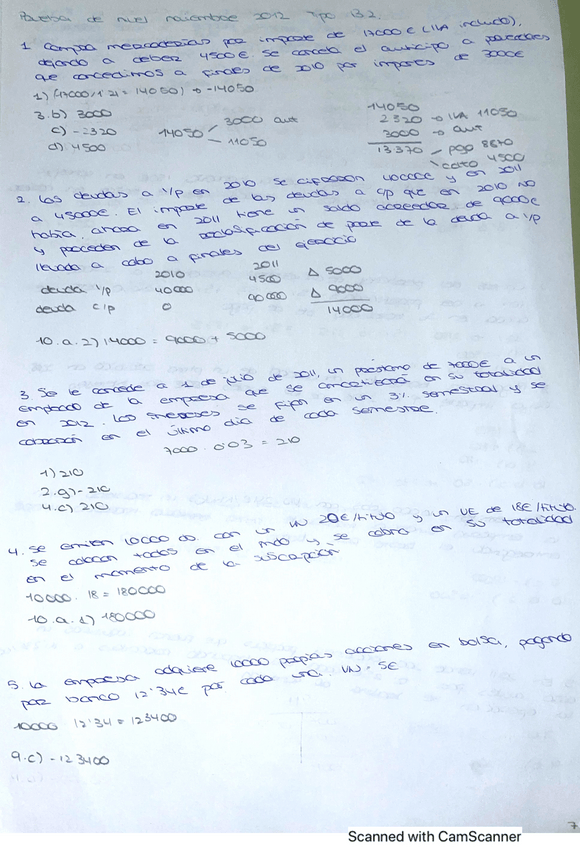 Prueba de nivel noviembre 2012 Tipo B.2.
1. Compra mercaderías por importe de 17000 € (IVA incluido),
dejando a deber 4500 € se cancela el anticipo a proveedores
que concedimos a finales de 2010 por importes de 3000€
1) (17000/1'21 = 14050) → -14050
3.b) 3000
c) -2320
d) 4500
14050 3000 ant
11050
14050
2320 → IVA 11050
3000 → ant
13370 pgo 8870
cdto 4500
2. Las deudas a l/p en 2010 se cifraban 40000€ y en 2011
a 45000€. El importe de las deudas a c/p que en 2010 no
había, ahora en 2011 tiene un saldo acreedor de 9000€
y proceden de la reclasificación de parte de la deuda a l/p
llevada a cabo a finales del ejercicio
2010 2011
deuda l/p 40000 4500 Δ 5000
deuda c/p 0 90000 Δ 9000
14000
10.a.2) 14000 = 9000 + 5000
3. Se le concede a 1 de julio de 2011, un préstamo de 7000€ a un
empleado de la empresa que se cancelará en su totalidad
en 2012. Los intereses se fijan en un 3% semestral y se
cobrarán en el último día de cada semestre.
7000 · 0'03 = 210
1) 210
2.g) - 210
4.c) 210
4. Se emiten 10000 oo. con un VN 20€/título y un VE de 18€/título.
Se colocan todos en el mdo y se cobra en su totalidad
en el momento de la suscripción
10000 · 18 = 180000
10.a.1) 180000
5. La empresa adquiere 10000 propias acciones en bolsa, pagando
por banco 12'34€ por cada una. VN = 5€
10000 · 12'34 = 123400
9.c) - 123400
7
Scanned with CamScanner